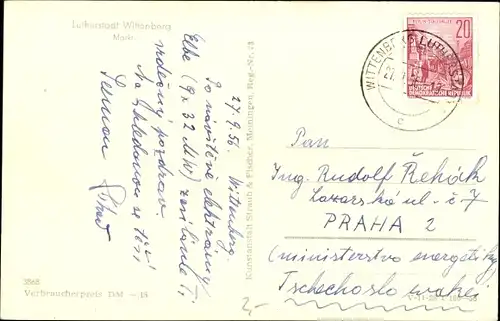 Lutherstadt Wittenberg
Markt
27.9.56. Wittenberg.
Po návštěvě elektrárny
Elbe (9 x 32 MW) zasílám Ti
srdečný pozdrav.
Na shledanou se těší
Kunstanstalt Straub & Fischer, Meiningen, Reg.-Nr.
3868
Verbraucherpreis DM -.15
2,-
20
DEUTSCHE
DEMOKRATISCHE REPUBLIK
WITTENBERG LUTHERSTADT
c
Pan
Ing. Rudolf Řehák
Lazarská ul. č 7
PRAHA 2
(ministerstvo energetiky)
Tschechoslowakei